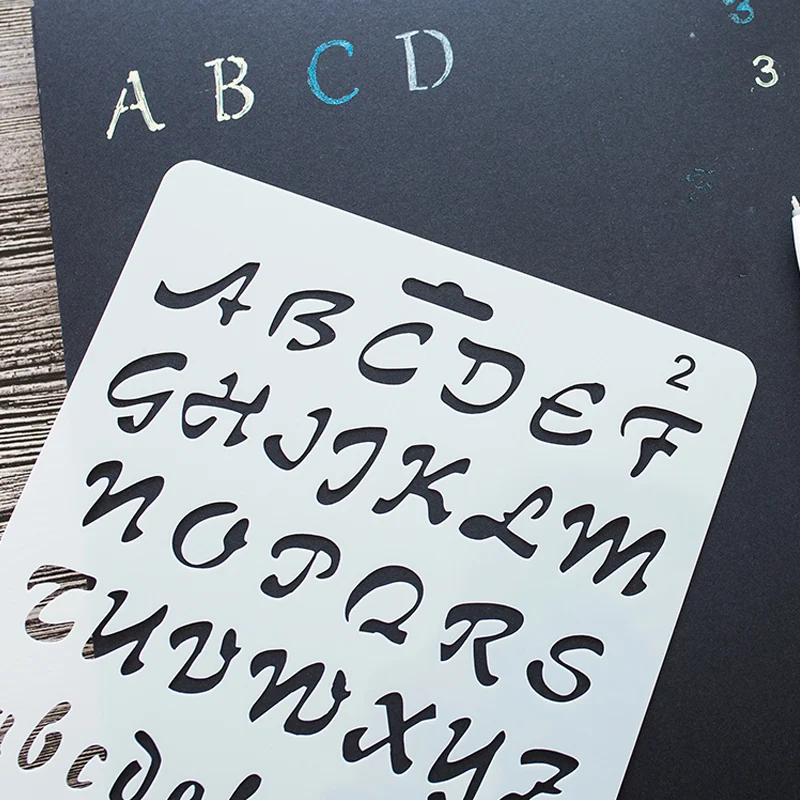 3
A B C D
3
2
A B C D E F
G H I J K L M
N O P Q R S
T U V W X Y Z
b c d